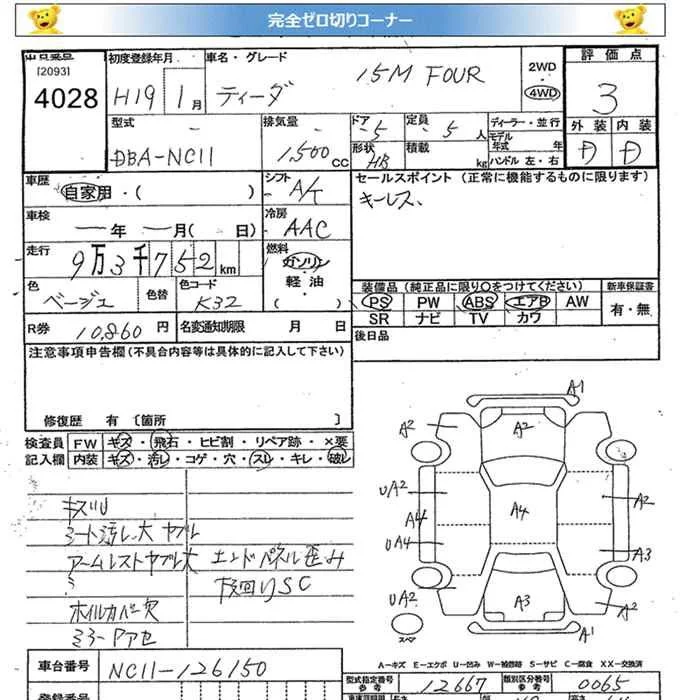 完全ゼロ切りコーナー
出品番号 初度登録年月 車名・グレード 評価点
[2093]
4028 H19 1月 ティーダ 15M FOUR 2WD 4WD 3
外装 内装
D D
型式 排気量 ドア 定員 ディーラー・並行
DBA-NC11 1,500cc 5 5人 モデル年式 年
形状 HB 積載 kg ハンドル 左・右
車歴 シフト セールスポイント(正常に機能するものに限ります)
自家用・( ) A/ キーレス、
車検 冷房
年 月( 日) AAC
走行 燃料
9万3千752km ガソリン・軽油
色 色替 色コード 装備品(純正品に限り○をつけてください) 新車保証書
ベージュ K32 PS PW ABS エアB AW 有・無
SR ナビ TV カワ
R券 10,860円 名変通知期限 月 日 後日品
注意事項申告欄(不具合内容等は具体的に記入して下さい)
修復歴 有 〔箇所 〕
検査員 FW キズ・飛石・ヒビ割・リペア跡・×要
記入欄 内装 キズ・汚レ・コゲ・穴・スレ・キレ・破レ
キズU
シート汚レ大 ヤブレ
アームレストヤブレ大 エンドパネル歪み
下回りSC
ホイルカバー欠
ミラーアセ
A1
A2 A2
UA2 A2
A4 A4
UA4 A3
UA2 A3 A2
スペア A1
A-キズ E-エクボ U-凹み W-補修跡 S-サビ C-腐食 XX-交換済
車台番号 NC11-126150
型式指定番号 参考 12667 類別区分番号 参考 0065
登録番号